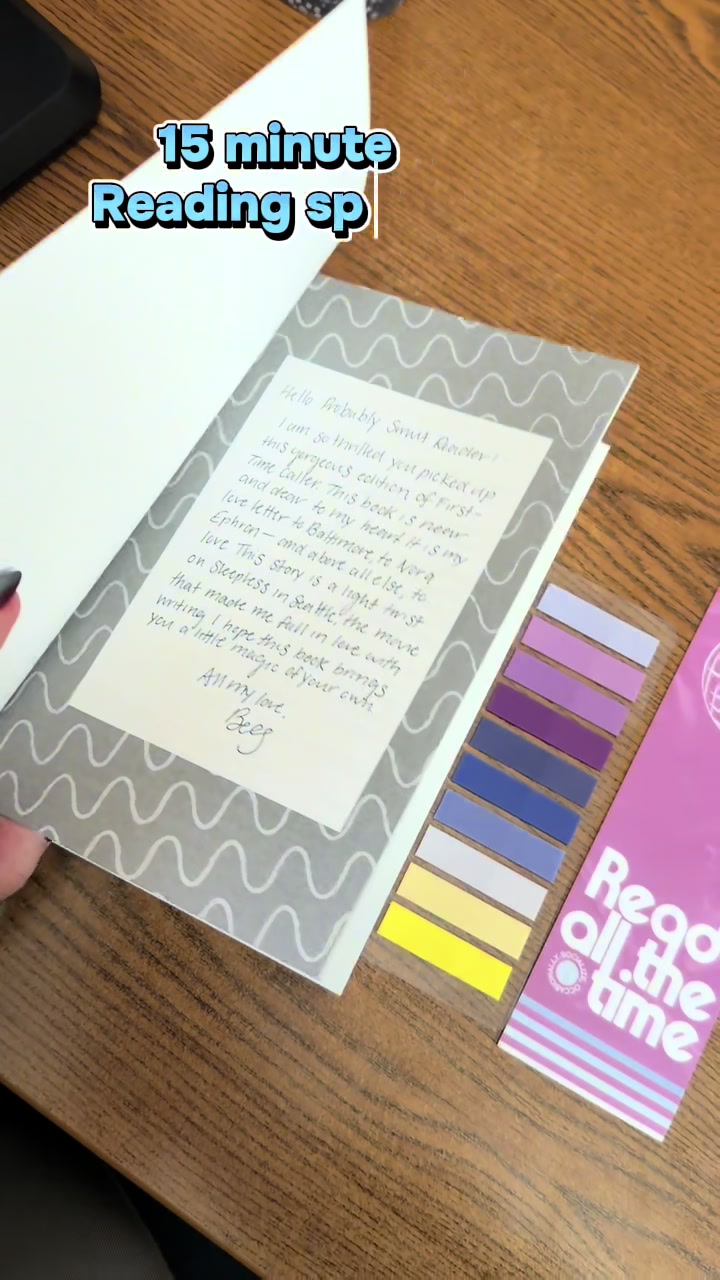 15 minute
Reading sp
Hello Probably Smut Reader!
I am so thrilled you picked up
this gorgeous edition of First-
Time Caller. This book is near
and dear to my heart. It is my
love letter to Baltimore, to Nora
Ephron — and above all else, to
love. This story is a light twist
on Sleepless in Seattle, the movie
that made me fall in love with
writing. I hope this book brings
you a little magic of your own.
All my love,
Beeg
Read
all the
time
OCCASIONALLY SOCIALIZE